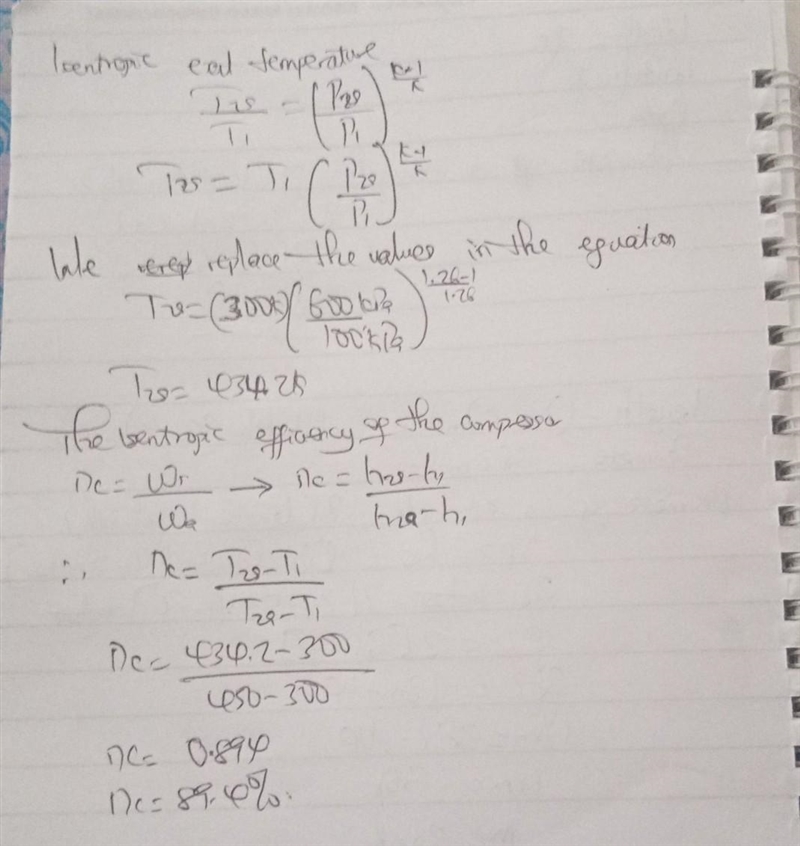 Isentropic exit temperature
T2s/T1 = (P2s/P1)^(k-1/k)
T2s = T1 (P2s/P1)^(k-1/k)
We replace the values in the equation
T2s = (300K)(600kPa/100kPa)^(1.26-1/1.26)
T2s = 434.2K
The Isentropic efficency of the compessor
nc = Wr/Wa → nc = h2s-h1/h2a-h1
∴ nc = T2s-T1/T2a-T1
nc = 434.2-300/450-300
nc = 0.894
nc = 89.4%.